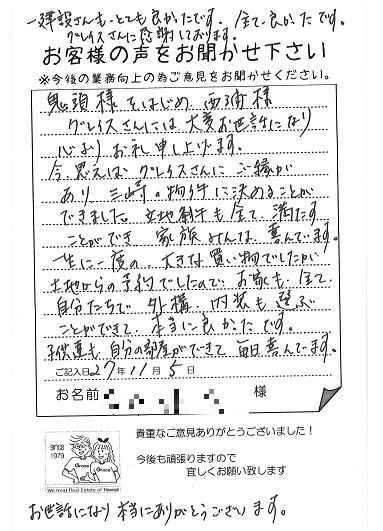 一建設さんも、とても良かたです。全て良かたです。
グレイスさんに感謝しております。
お客様の声をお聞かせ下さい
※今後の業務向上の為ご意見をお聞かせください。
鬼頭様をはじめ、西浦様
グレイスさんには大変お世話になり
心よりお礼申し上げます。
今、思えば、グレイスさんにご縁が
あり 三崎の物件に決めることが
できました。立地条件も全て満たす
ことができ 家族みんな喜んでます。
一生に一度の大きな買い物でしたが
土地からの予約でしたので お家も全て
自分たちで 外構、内装も選ぶ
ことができて、本当に良かたです。
子供達も自分の部屋ができて毎日喜んでます。
ご記入日 27年11月5日
お名前 様
SINCE
1979
Grace Grace
We treat Real Estate of Hawaii
貴重なご意見ありがとうございました!
今後も頑張りますので
宜しくお願い致します
お世話になり 本当にありがとうございます。